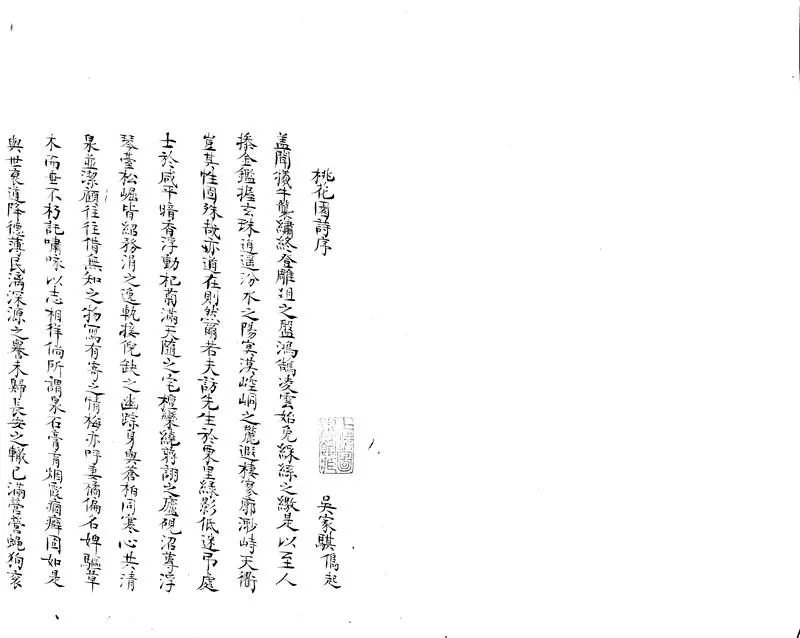 桃花園詩序
吳家騏儁起
蓋聞犧牛龔繡終登雕俎之盤鴻鵠凌雲始免綵絲之繳是以至人
捧金鑑握玄珠逍遥汾水之陽寞漠崆峒之麓遐棲寥廓峙天衢
豈其性固殊哉亦道在則然爾若夫訪先生於東皇綠影低迷弔處
士於咸平暗香浮動杞菊滿天隨之宅檀欒繞蔣詡之廬硯沼蓴浮
琴臺松崛皆紹務涓之逸軌接倪缺之幽踪身與蒼柏同寒心共清
泉並潔顧往往借無知之物寫有寄之情梅亦呼妻橘偏名婢驅草
木而垂不朽託嘯咏以志相徉倘所謂泉石膏肓烟霞痼癖固如是
與世衰道降德薄民漓深源之譽未歸長安之轍已滿營營蠅狗衮